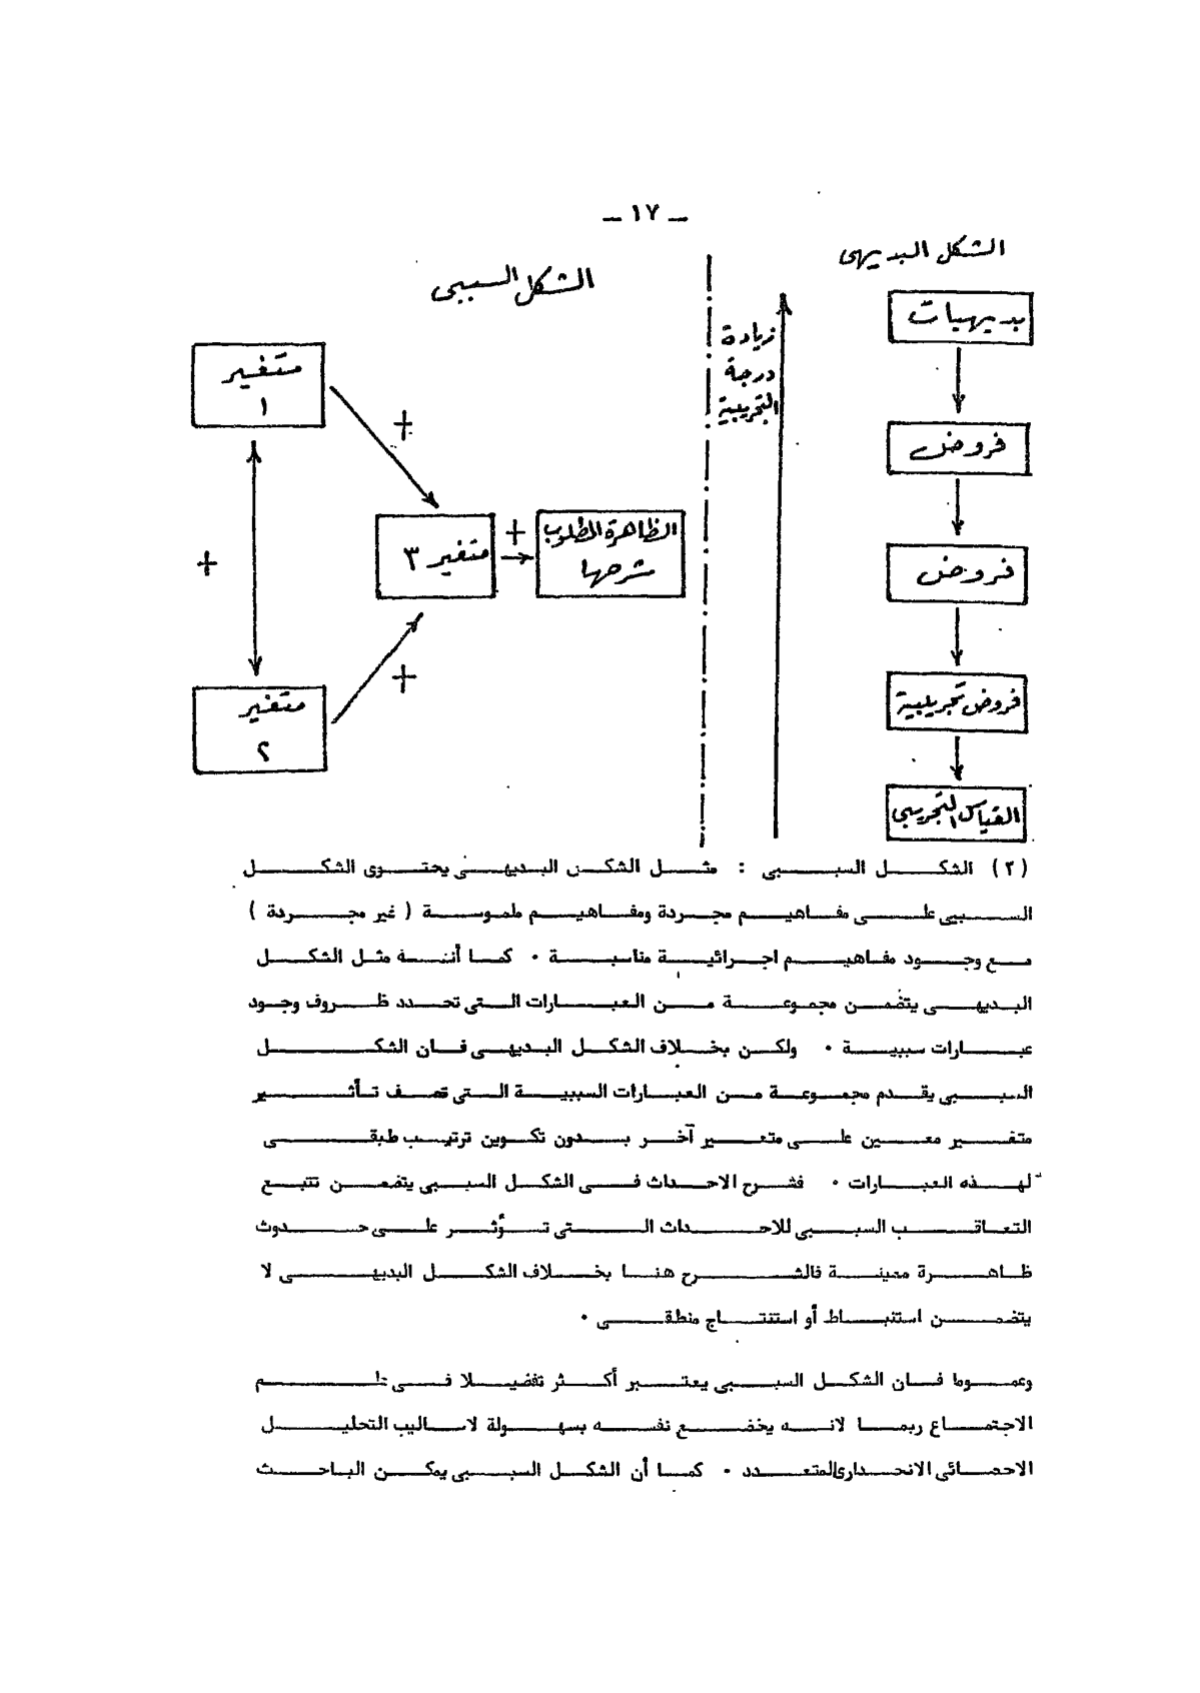 ــ ١٧ ــ
الشكل البديهى
بديهيات
فروض
فروض
فروض تجريبية
القياس التجريبى
زيادة
درجة
التجريبية
الشكل السببى
متغير
١
+
متغير ٣
+
الظاهرة المطلوب
شرحها
+
+
متغير
٢
(٢) الشكل السببى : مثل الشكل البديهى يحتوى الشكل
السببى على مفاهيم مجردة ومفاهيم ملموسة ( غير مجردة )
مع وجود مفاهيم اجرائية مناسبة ٠ كما أنه مثل الشكل
البديهى يتضمن مجموعة من العبارات التى تحدد ظروف وجود
عبارات سببية ٠ ولكن بخلاف الشكل البديهى فان الشكل
السببى يقدم مجموعة من العبارات السببية التى تصف تأثير
متغير معين على متغير آخر بدون تكوين ترتيب طبقى
لهذه العبارات ٠ فشرح الاحداث فى الشكل السببى يتضمن تتبع
التعاقب السببى للاحداث التى تؤثر على حدوث
ظاهرة معينة فالشرح هنا بخلاف الشكل البديهى لا
يتضمن استنباط أو استنتاج منطقى ٠
وعموما فان الشكل السببى يعتبر أكثر تفضيلا فى علم
الاجتماع ربما لانه يخضع نفسه بسهولة لاساليب التحليل
الاحصائى الانحدارى المتعدد ٠ كما أن الشكل السببى يمكن الباحث